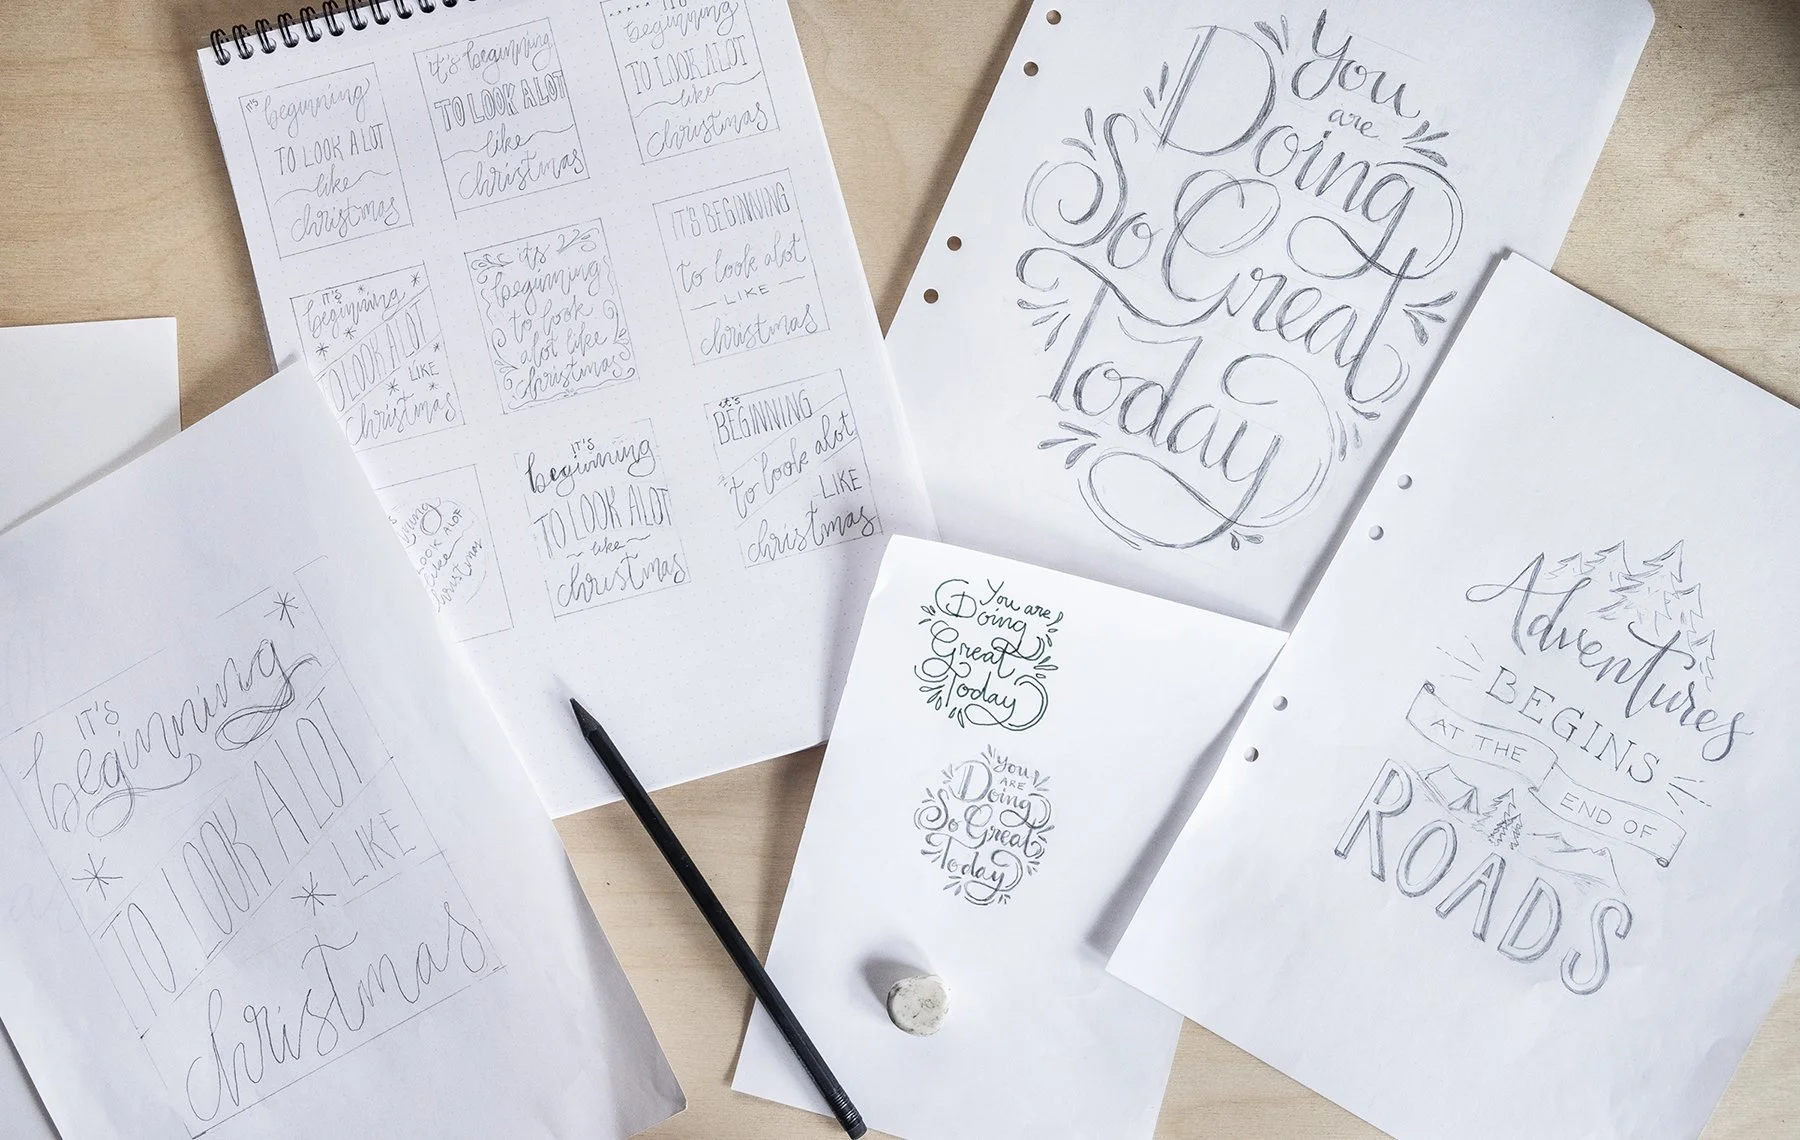 IT'S
beginning
TO LOOK ALOT
like
christmas
it's beginning
TO LOOK ALOT
like
christmas
IT'S
beginning
TO LOOK ALOT
like
christmas
IT'S
beginning
TO LOOK ALOT
LIKE
christmas
it's
beginning
to look
alot like
christmas
IT'S BEGINNING
to look alot
LIKE
christmas
LOOK ALOT
like
christmas
IT'S
beginning
TO LOOK ALOT
like
christmas
it's
BEGINNING
to look alot
LIKE
christmas
IT'S
beginning
TO LOOK ALOT
LIKE
christmas
You
are
Doing
So Great
Today
You are
Doing
Great
Today
You
ARE
Doing
So Great
Today
Adventures
BEGINS
AT THE
END OF
ROADS